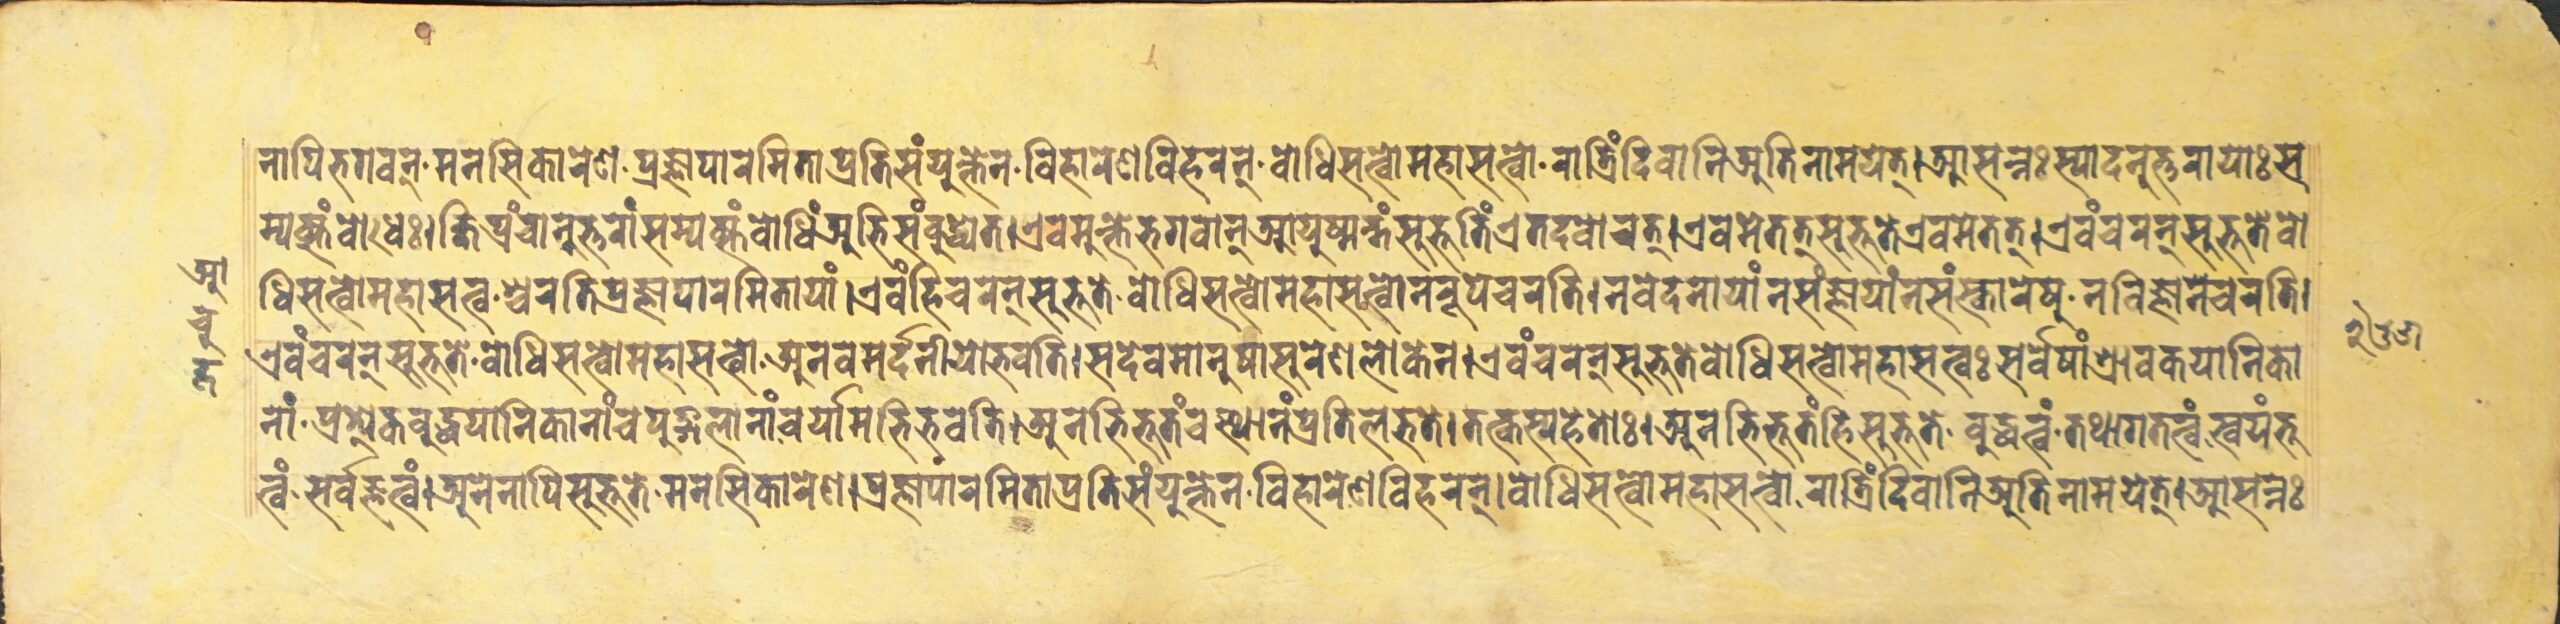 नापि भगवन्·मनसिकारेण·प्रज्ञापारमिताप्रतिसंयुक्तेन·विहारेणविहरन्·वोधिसत्त्वोमहासत्त्वो·रात्रिंदिवानिअतिनामयेत्।आसन्नःस्यादनुत्तरायाःस
म्यक्संवोधेः।क्षिप्रंचानुत्तरांसम्यक्संवोधिंअभिसंवुद्ध्येत।एवमुक्तेभगवान्आयुष्मन्तंसुभूतिंएतदवोचत्।एवमेतत्सुभूतेएवमेतत्।एवंचरन्सुभूतेवो
धिसत्त्वोमहासत्त्व·श्चरतिप्रज्ञापारमितायां।एवंहिचरन्सुभूते·वोधिसत्त्वोमहासत्त्वोनरूपेचरति।नवेदनायांनसंज्ञायांनसंस्कारेषु·नविज्ञानेचरति।
एवंचरन्सुभूते·वोधिसत्त्वोमहासत्त्वो·अनवमर्दनीयोभवति।सदेवमानुषासुरेणलोकेन।एवंचरन्सुभूतेवोधिसत्त्वोमहासत्त्वःसर्वेषांश्रावकयानिका
नां·प्रत्येकवुद्धयानिकानांचपुद्गलानांचर्यामभिभवति।अनभिभूतंचस्थानंप्रतिलभते।तत्कस्यहेतोः।अनभिभूतंहिसुभूते·वुद्धत्वं·तथागतत्वं·स्वयंभू
त्वं·सर्वज्ञत्वं।अनेनापिसुभूते·मनसिकारेण।प्रज्ञापारमिताप्रतिसंयुक्तेन·विहारेणविहरन्।वोधिसत्त्वोमहासत्त्वो·रात्रिंदिवानिअतिनामयेत्।आसन्नः